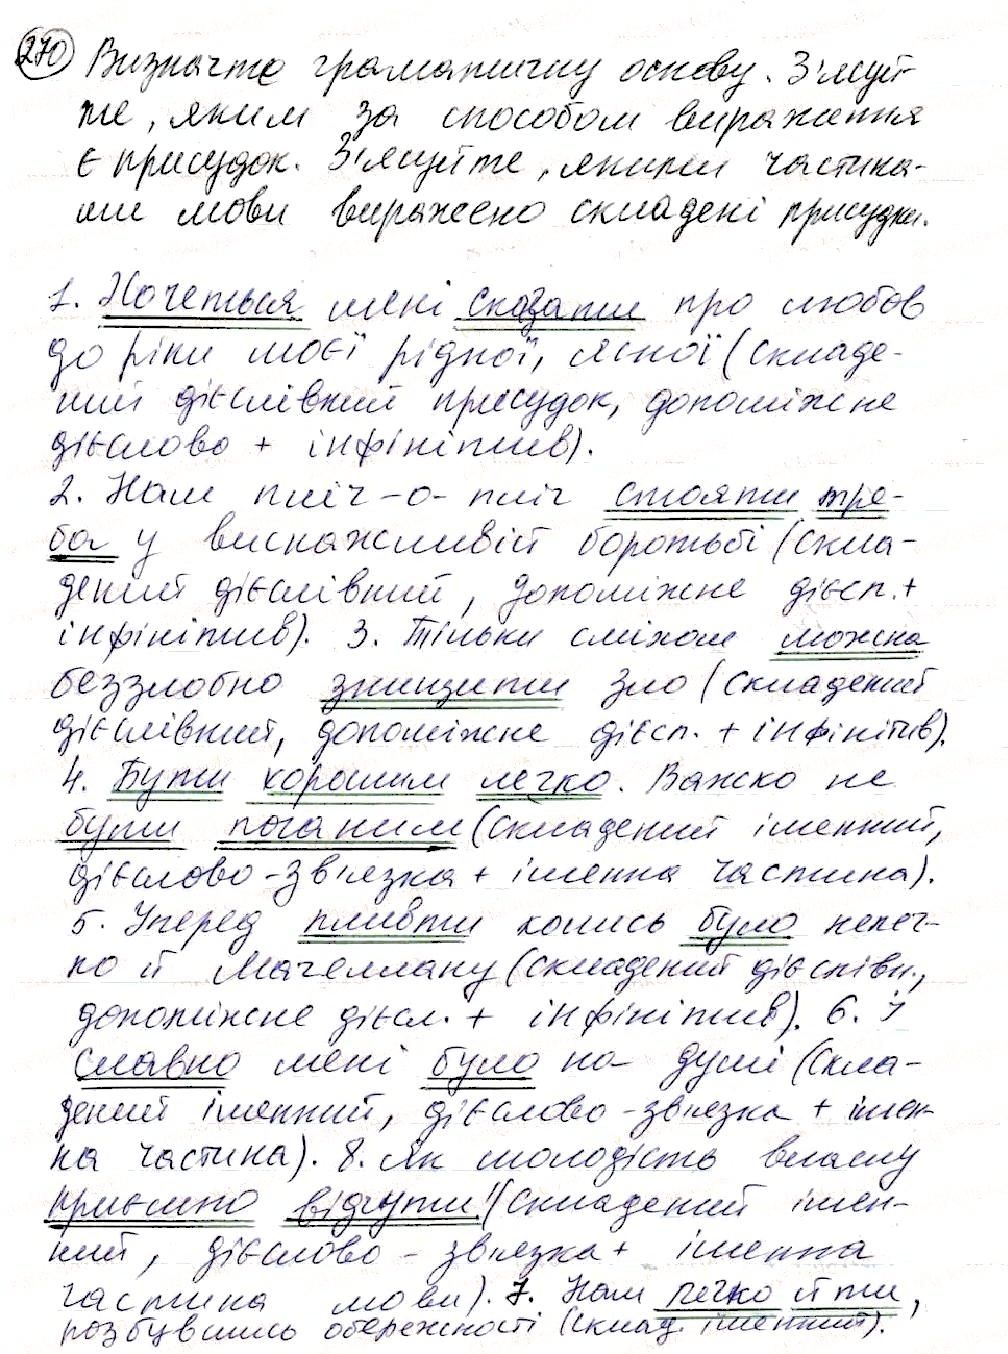 270 Визначте граматичну основу. З'ясуй-
те, яким за способом вираження
є присудок. З'ясуйте, якими частина-
ми мови виражено складені присудки.
1. Хочеться мені сказати про любов
до ріки моєї рідної, ясної (складе-
ний дієслівний присудок, допоміжне
дієслово + інфінітив).
2. Нам пліч-о-пліч стояти тре-
ба у виснажливій боротьбі (скла-
дений дієслівний, допоміжне дієсл. +
інфінітив). 3. Тільки сміхом можна
беззлобно знищити зло (складений
дієслівний, допоміжне дієсл. + інфінітив).
4. Бути хорошим легко. Важко не
бути поганим (складений іменний,
дієслово-зв'язка + іменна частина).
5. Уперед пливти колись було нелег-
ко й Магеллану (складений дієслівн.,
допоміжне дієсл. + інфінітив). 6. Й
славно мені було на душі (скла-
дений іменний, дієслово-зв'язка + імен-
на частина). 8. Як молодість власну
приємно відчути! (складений імен-
ний, дієслово-зв'язка + іменна
частина мови). 7. Нам легко йти,
розбувшись обережності (склад. іменний).